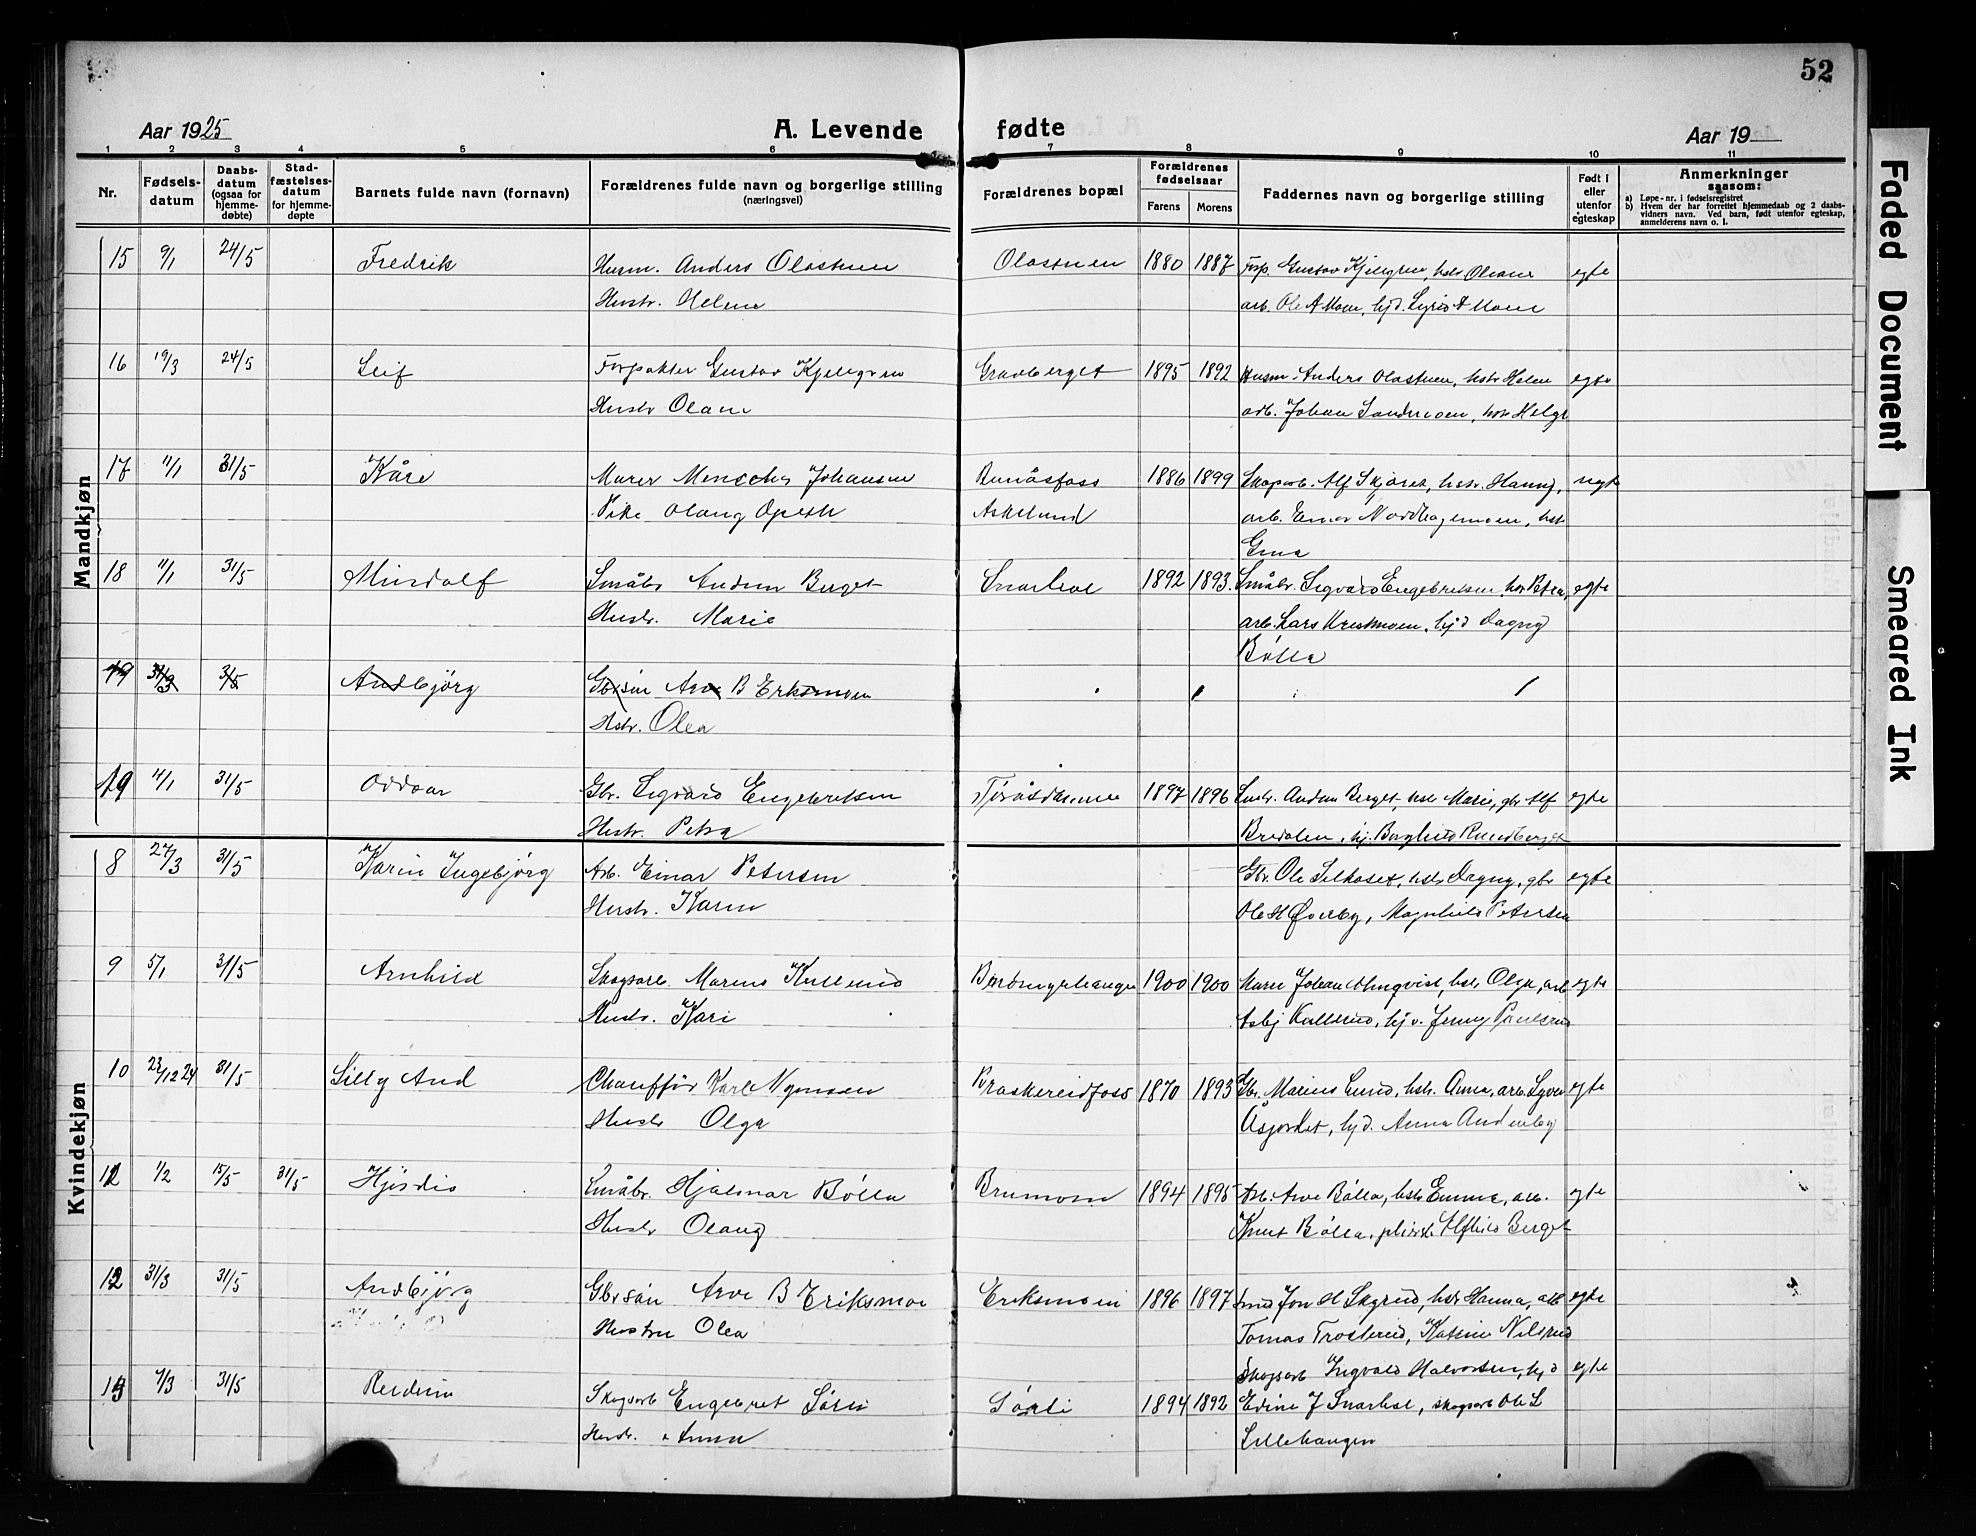 52
Aar 1925 A. Levende fødte Aar 19
1 2 3 4 5 6 7 8 9 10 11
Nr. Fødsels-datum Daabs-datum (ogsaa for hjemme-døbte) Stad-fæstelses-datum for hjemme-døpte Barnets fulde navn (fornavn) Forældrenes fulde navn og borgerlige stilling (næringsvei) Forældrenes bopæl Forældrenes fødselsaar Farens Morens Faddernes navn og borgerlige stilling Født i eller utenfor egteskap Anmerkninger saasom:
a) Løpe-nr. i fødselsregistret
b) Hvem der har forrettet hjemmedaab og 2 daabs-vidners navn. Ved barn, født utenfor egteskap, anmelderens navn o. l.
Mandkjøn
15 9/1 24/5 Fredrik Husm. Anders Olastuen Olastuen 1880 1887 Forp. Gustav Kjellgren, hstr Olame egte
Hustr. Helene arb. Ole A Moen, hjd. Sigrid A Moen
16 19/3 24/5 Leif Forpakter Gustav Kjellgren Gravberget 1895 1892 Husm. Anders Olastuen, hstr Helen egte
Hustr Olame arb. Johan Sandmoen, hstr Helga
17 11/1 31/5 Kåre Murer Johansen Runåsfoss 1886 1899 Skogsarb. Alf Skjøret, hstr. Hanny, uegte
Pike Olaug Opseth Askelund arb. Einar Nordhagenmoen, hstr.
Gina
18 11/1 31/5 Mindolf Småbr Andrin Berget Snarhol 1892 1893 Småbr. Sigvard Engebretsen, hstr Petra, egte
Hustr. Marie arb. Lars Kristmoen, hjd Dagny
Bølla
19 31/3 3/5 Andbjörg Gbrsön Arve B Eriksmoen
Hstr. Olea
19 11/1 31/5 Oddvar Gbr. Sigvard Engebretsen 1897 1896 Småbr. Andrin Berget, hstr Marie, gbr Alf egte
Hustr. Petra Bredalen, hj. Borghild Rundberget
Kvindekjøn
8 27/3 31/5 Karin Ingebjørg Arb. Einar Petersen Gbr. Ole Silkoset, hstr Dagny, gbr egte
Hustr. Karen Ole H Øverby, Magnhild Petersen
9 5/1 31/5 Arnhild Skogsarb. Marius Kullerud 1900 1900 Murer Johan Almqvist, hstr Olga, arb egte
Hustr. Kari Asbj Kullerud, hj v. Jenny Paulsrud
10 23/12 24 31/5 Lilly Aud Chauffør Karl Nymoen Braskereidfoss 1870 1893 Gbr. Marius Lund, hstr. Anna, arb. Syver egte
Hustr Olga Åsjordet, hjd. Anna Anderby
11 1/2 15/5 31/5 Hjørdis Småbr. Hjalmar Bølla Brumoen 1894 1895 Arb. Arve Bølla, hstr Emma, arb. egte
Hustr Olaug Knut Bølla, Alfhild Berget
12 31/3 31/5 Andbjörg Gbrsön Arve B Eriksmoe Eriksmoen 1896 1897 Jon H Skyrud, hstr Hanna, arb egte
Hustru Olea Tomas Trosterud, Katrine Nilsrud
13 7/3 31/5 Reidun Skogsarb Engebret Sørli Sørli 1894 1892 Skogsarb Ingvald Halvorsen, hjd egte
Hustr. Anna Edine J Snarhol, skogsarb Ole L
Lillehaugen
Faded Document
Smeared Ink